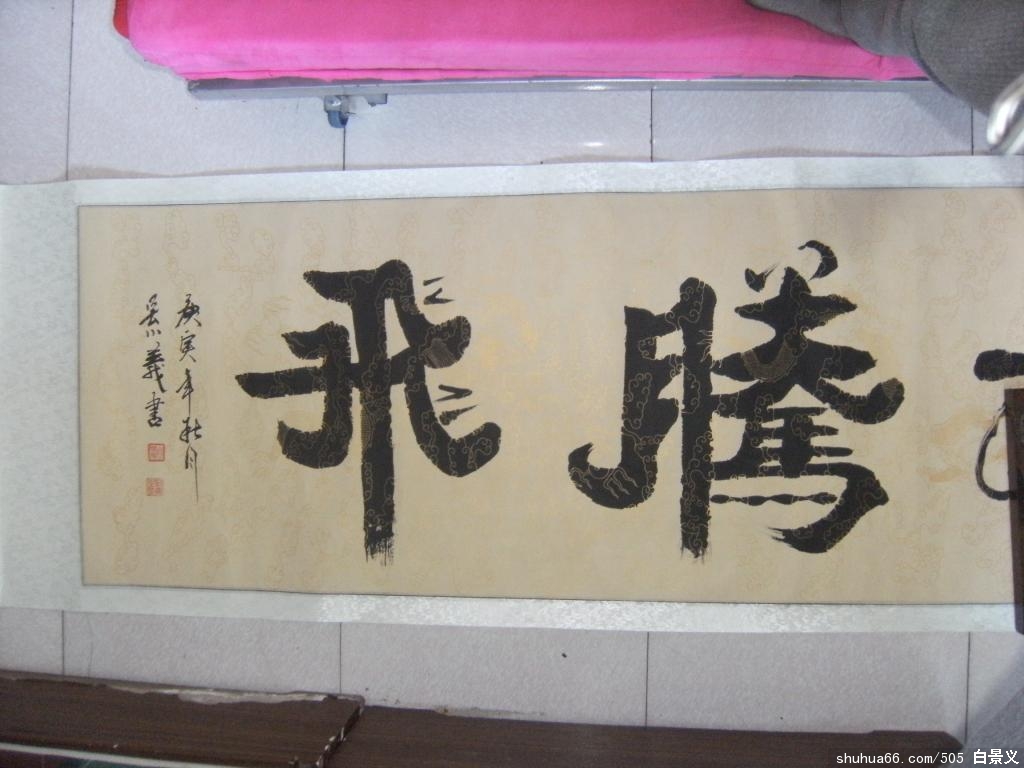 騰飛
庚寅年秋月
吴小義書
shuhua66.com/505 白景义